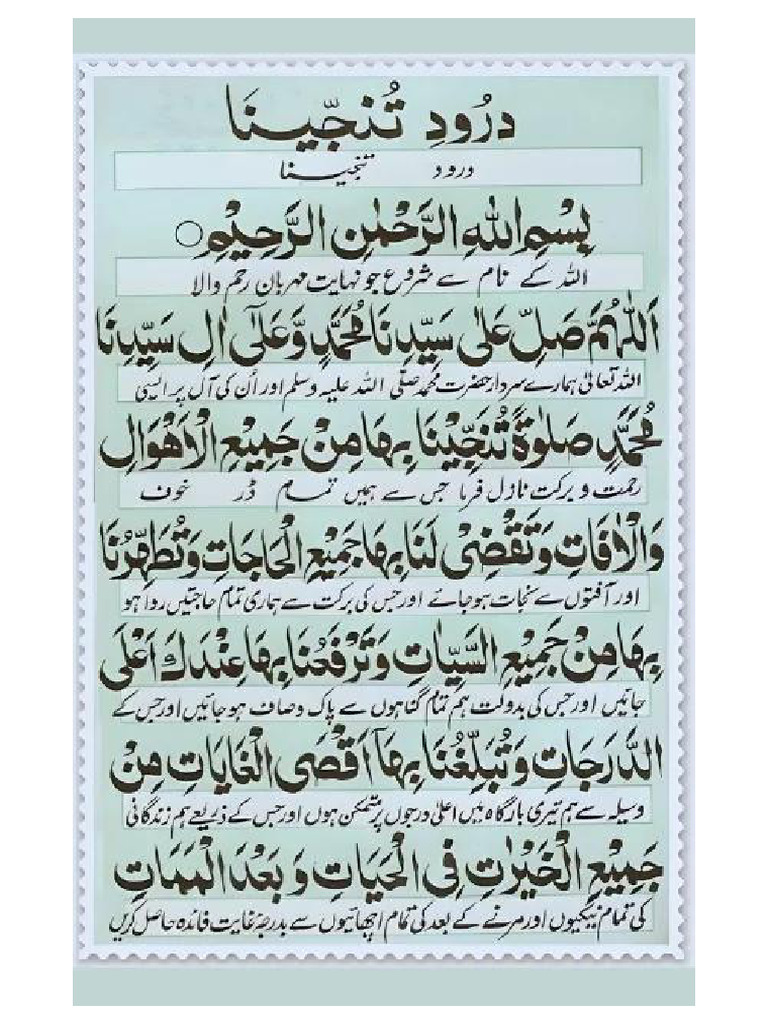 درُودِ تُنجّینَا
درود تنجینا
بِسْمِ اللهِ الرَّحْمٰنِ الرَّحِیْمِ
اللہ کے نام سے شروع جو نہایت مہربان رحم والا
اَللّٰهُمَّ صَلِّ عَلٰی سَیِّدِنَا مُحَمَّدٍ وَّعَلٰٓی اٰلِ سَیِّدِنَا
اللہ تعالیٰ ہمارے سردار حضرت محمد صلّی اللہ علیہ وسلم اور اُن کی آل پر ایسی
مُحَمَّدٍ صَلٰوةً تُنَجِّیْنَا بِهَا مِنْ جَمِیْعِ الْاَهْوَالِ
رحمت و برکت نازل فرما جس سے ہمیں تمام ڈر خوف
وَالْاٰفَاتِ وَتَقْضِیْ لَنَا بِهَا جَمِیْعَ الْحَاجَاتِ وَتُطَهِّرُنَا
اور آفتوں سے نجات ہوجائے اور جس کی برکت سے ہماری تمام حاجتیں روا ہو
بِهَا مِنْ جَمِیْعِ السَّیِّاٰتِ وَتَرْفَعُنَا بِهَا عِنْدَكَ اَعْلَی
جائیں اور جس کی بدولت ہم تمام گناہوں سے پاک و صاف ہوجائیں اور جس کے
الدَّرَجَاتِ وَتُبَلِّغُنَا بِهَآ اَقْصَی الْغَایَاتِ مِنْ
وسیلہ سے ہم تیری بارگاہ میں اعلیٰ درجوں پر متمکن ہوں اور جس کے ذریعے ہم زندگانی
جَمِیْعِ الْخَیْرٰتِ فِی الْحَیَاتِ وَبَعْدَ الْمَمَاتِ
کی تمام نیکیوں اور مرنے کے بعد کی تمام اچھائیوں سے بدرجۂ غایت فائدہ حاصل کریں